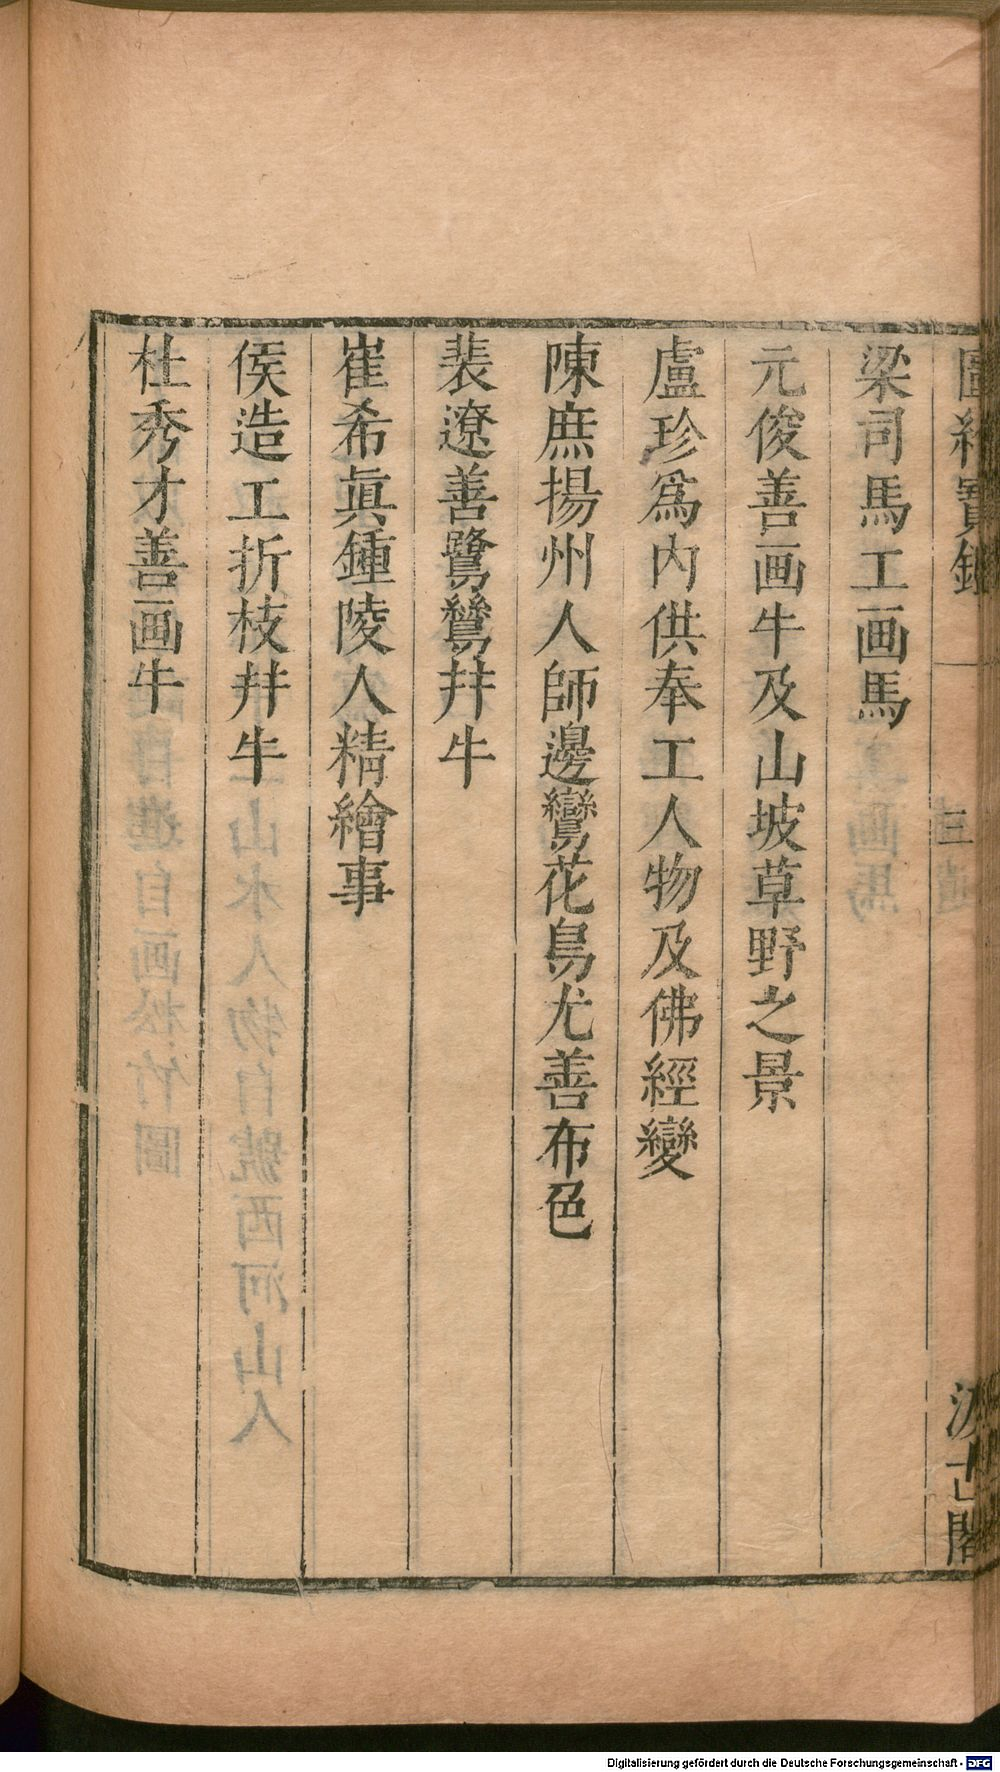 圖繪寶鑑
三
汲古閣
梁司馬工画馬
元俊善画牛及山坡草野之景
盧珍爲内供奉工人物及佛經變
陳庶揚州人師邊鸞花鳥尤善布色
裴遼善鷺鷥并牛
崔希眞鍾陵人精繪事
侯造工折枝并牛
杜秀才善画牛
Digitalisierung gefördert durch die Deutsche Forschungsgemeinschaft - DFG